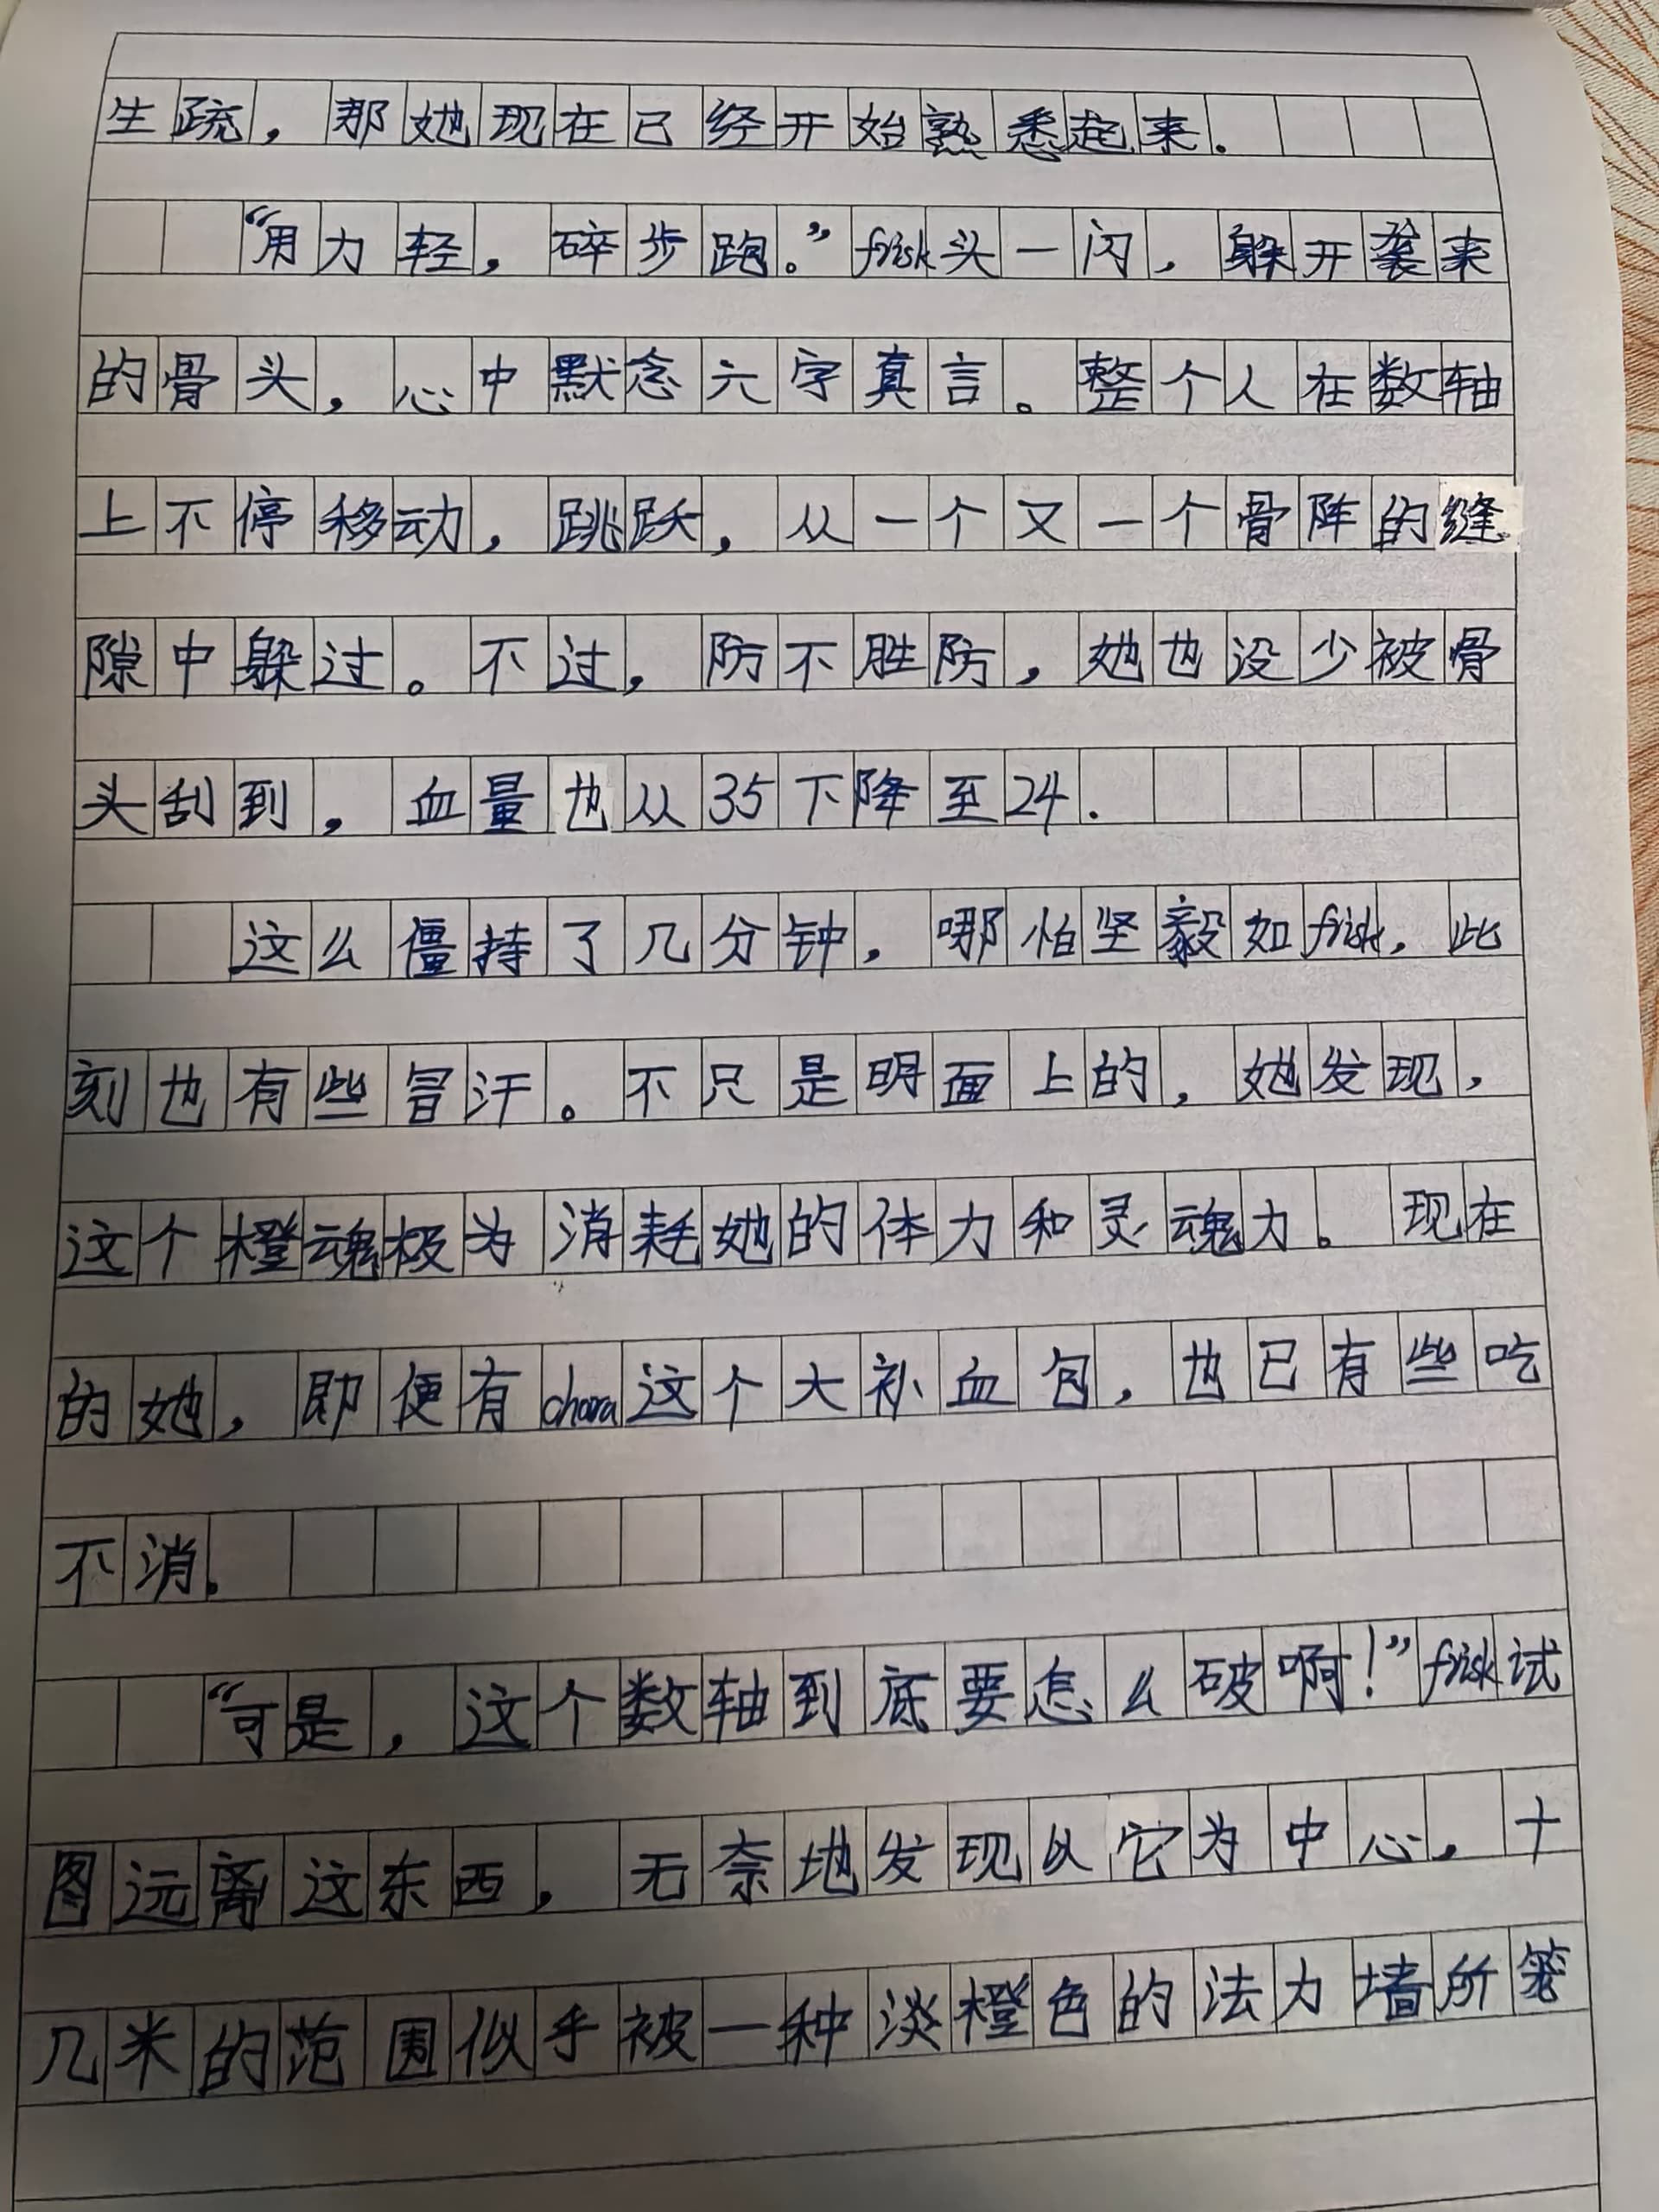 生疏，那她现在已经开始熟悉起来．
“用力轻，碎步跑。”frisk头一闪，躲开袭来
的骨头，心中默念六字真言。整个人在数轴
上不停移动，跳跃，从一个又一个骨阵的缝
隙中躲过。不过，防不胜防，她也没少被骨
头刮到，血量也从35下降至24．
这么僵持了几分钟，哪怕坚毅如frisk，此
刻也有些冒汗。不只是明面上的，她发现，
这个橙魂极为消耗她的体力和灵魂力。现在
的她，即便有chara这个大补血包，也已有些吃
不消。
“可是，这个数轴到底要怎么破啊！”frisk试
图远离这东西，无奈地发现以它为中心，十
几米的范围似乎被一种淡橙色的法力墙所笼